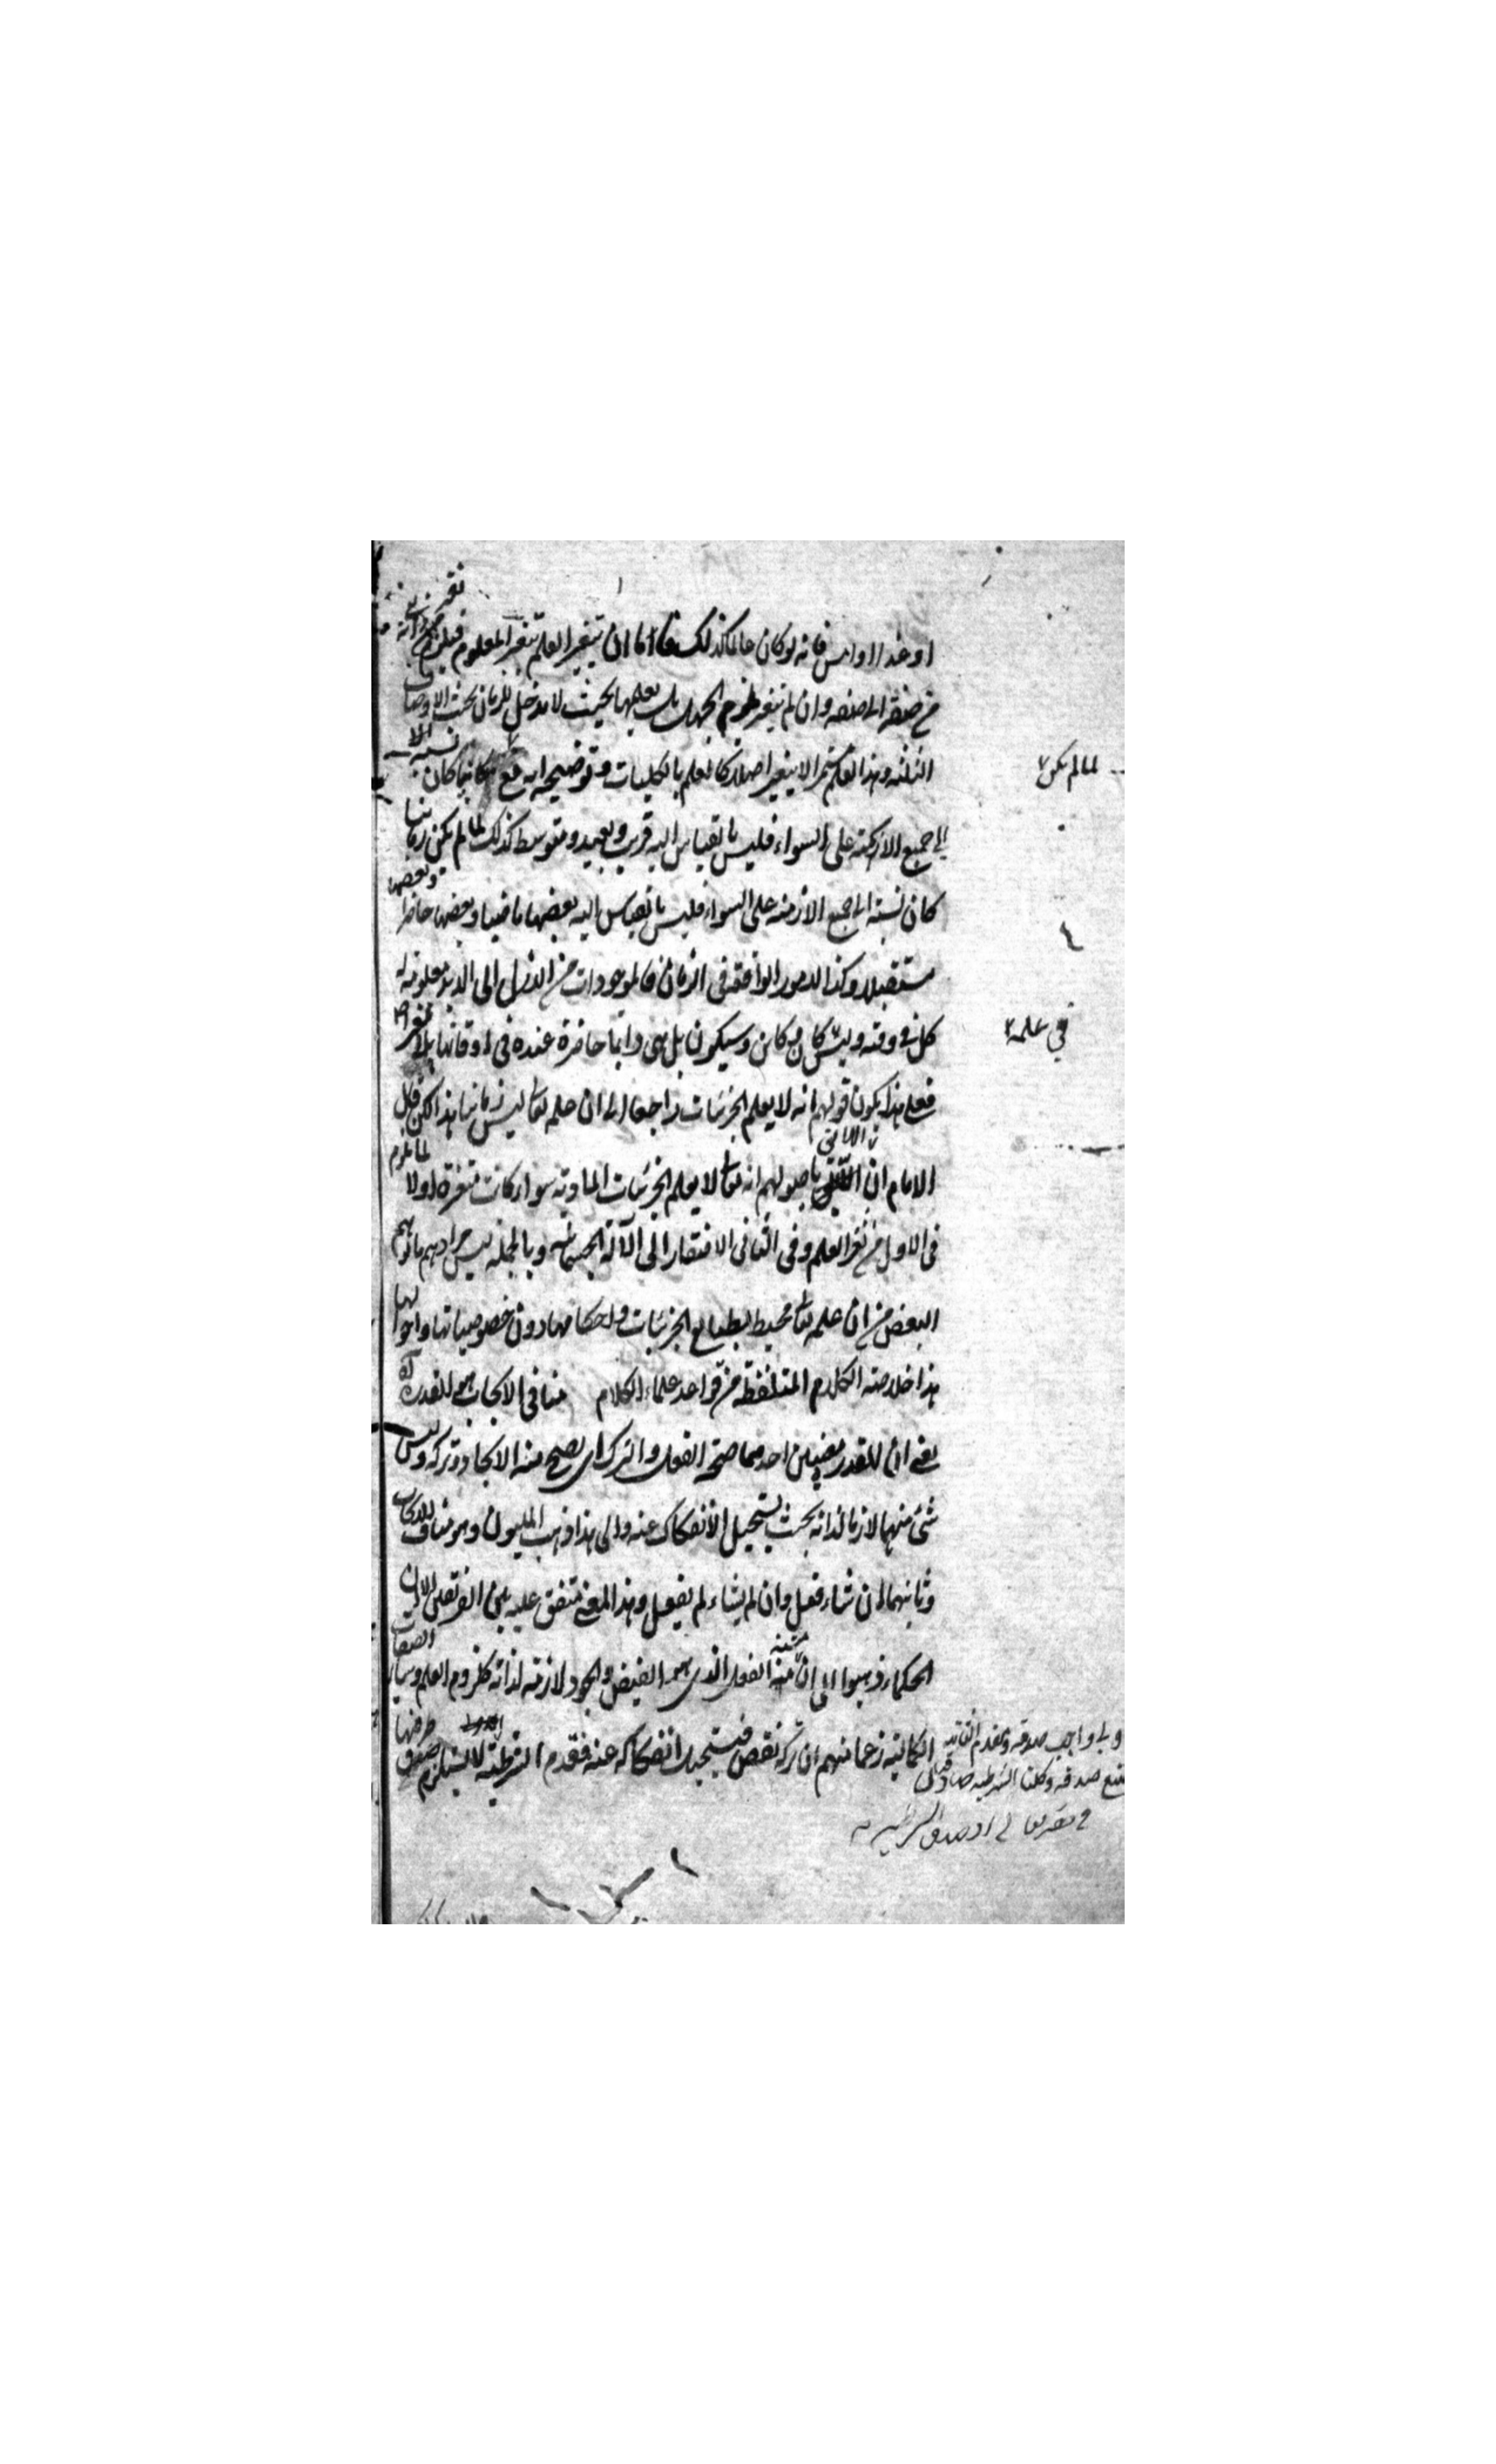 او غدا او امس فانه لو كان عالما كذلك فاما ان يتغير العلم بتغير المعلوم فيلزم تغيره
من صفة الى صفة وان لم يتغير لزم الجهل بل يعلمها بحيث لا مدخل للزمان بحسب الاوصاف
الثلثة وهذا العلم مستمر لا يتغير اصلا كالعلم بالكليات وتوضيحه انه تع مكانيا كان نسبته
لما لم يكن
الى جميع الامكنة على السواء فليس بالقياس اليه قريب وبعيد ومتوسط كذلك لما لم يكن زمانيا
كان نسبته الى جميع الازمنة على السواء فليس بالقياس اليه بعضها ماضيا وبعضها حاضرا وبعضها
مستقبلا وكذا الامور الواقعة في الزمان فالموجودات من الازل الى الابد معلومة له
كل في وقته وليس كان وكائن وسيكون بل هي دائما حاضرة عنده في اوقاتها بلا تغير
في علمه
فعلى هذا يكون قولهم انه لا يعلم الجزئيات راجعا الى ان علمه تعا ليس زمانيا هذا لكن قال
الامام ان اللائق باصولهم انه تعا لا يعلم الجزئيات المادية سواء كانت متغيرة او لا لما يلزم
في الاول من تغير العلم وفي الثاني الافتقار الى الآلة الجسمانية وبالجملة ليس مرادهم ما توهم
البعض من ان علمه تعا محيط بطبايع الجزئيات واحكامها دون خصوصياتها واحوالها
هذا خلاصة الكلام المتلفظة من قواعد علماء الكلام منافي الايجاب هو للقدرة آه
يعني ان للقدرة معنيين احدهما صحة الفعل والترك اي يصح منه الايجاد وتركه وليس
شئ منهما لازما لذاته بحيث يستحيل الانفكاك عنه والى هذا ذهب المليون وهو مناف للايجاب
وثانيهما ان شاء فعل وان لم يشاء لم يفعل وهذا المعنى متفق عليه بين الفريقين الا ان
الحكماء ذهبوا الى ان مشية الفعل الذي هو الفيض والجود لازمة لذاته كلزوم العلم وساير الصفات
الكمالية زعما منهم ان تركه نقص فيستحيل انفكاكه عنه فمقدم الشرطية لا يستلزم صدق طرفيها
واجب صدقه ومقدم الثانية
ممتنع صدقه وكلتا الشرطيتين صادقتان